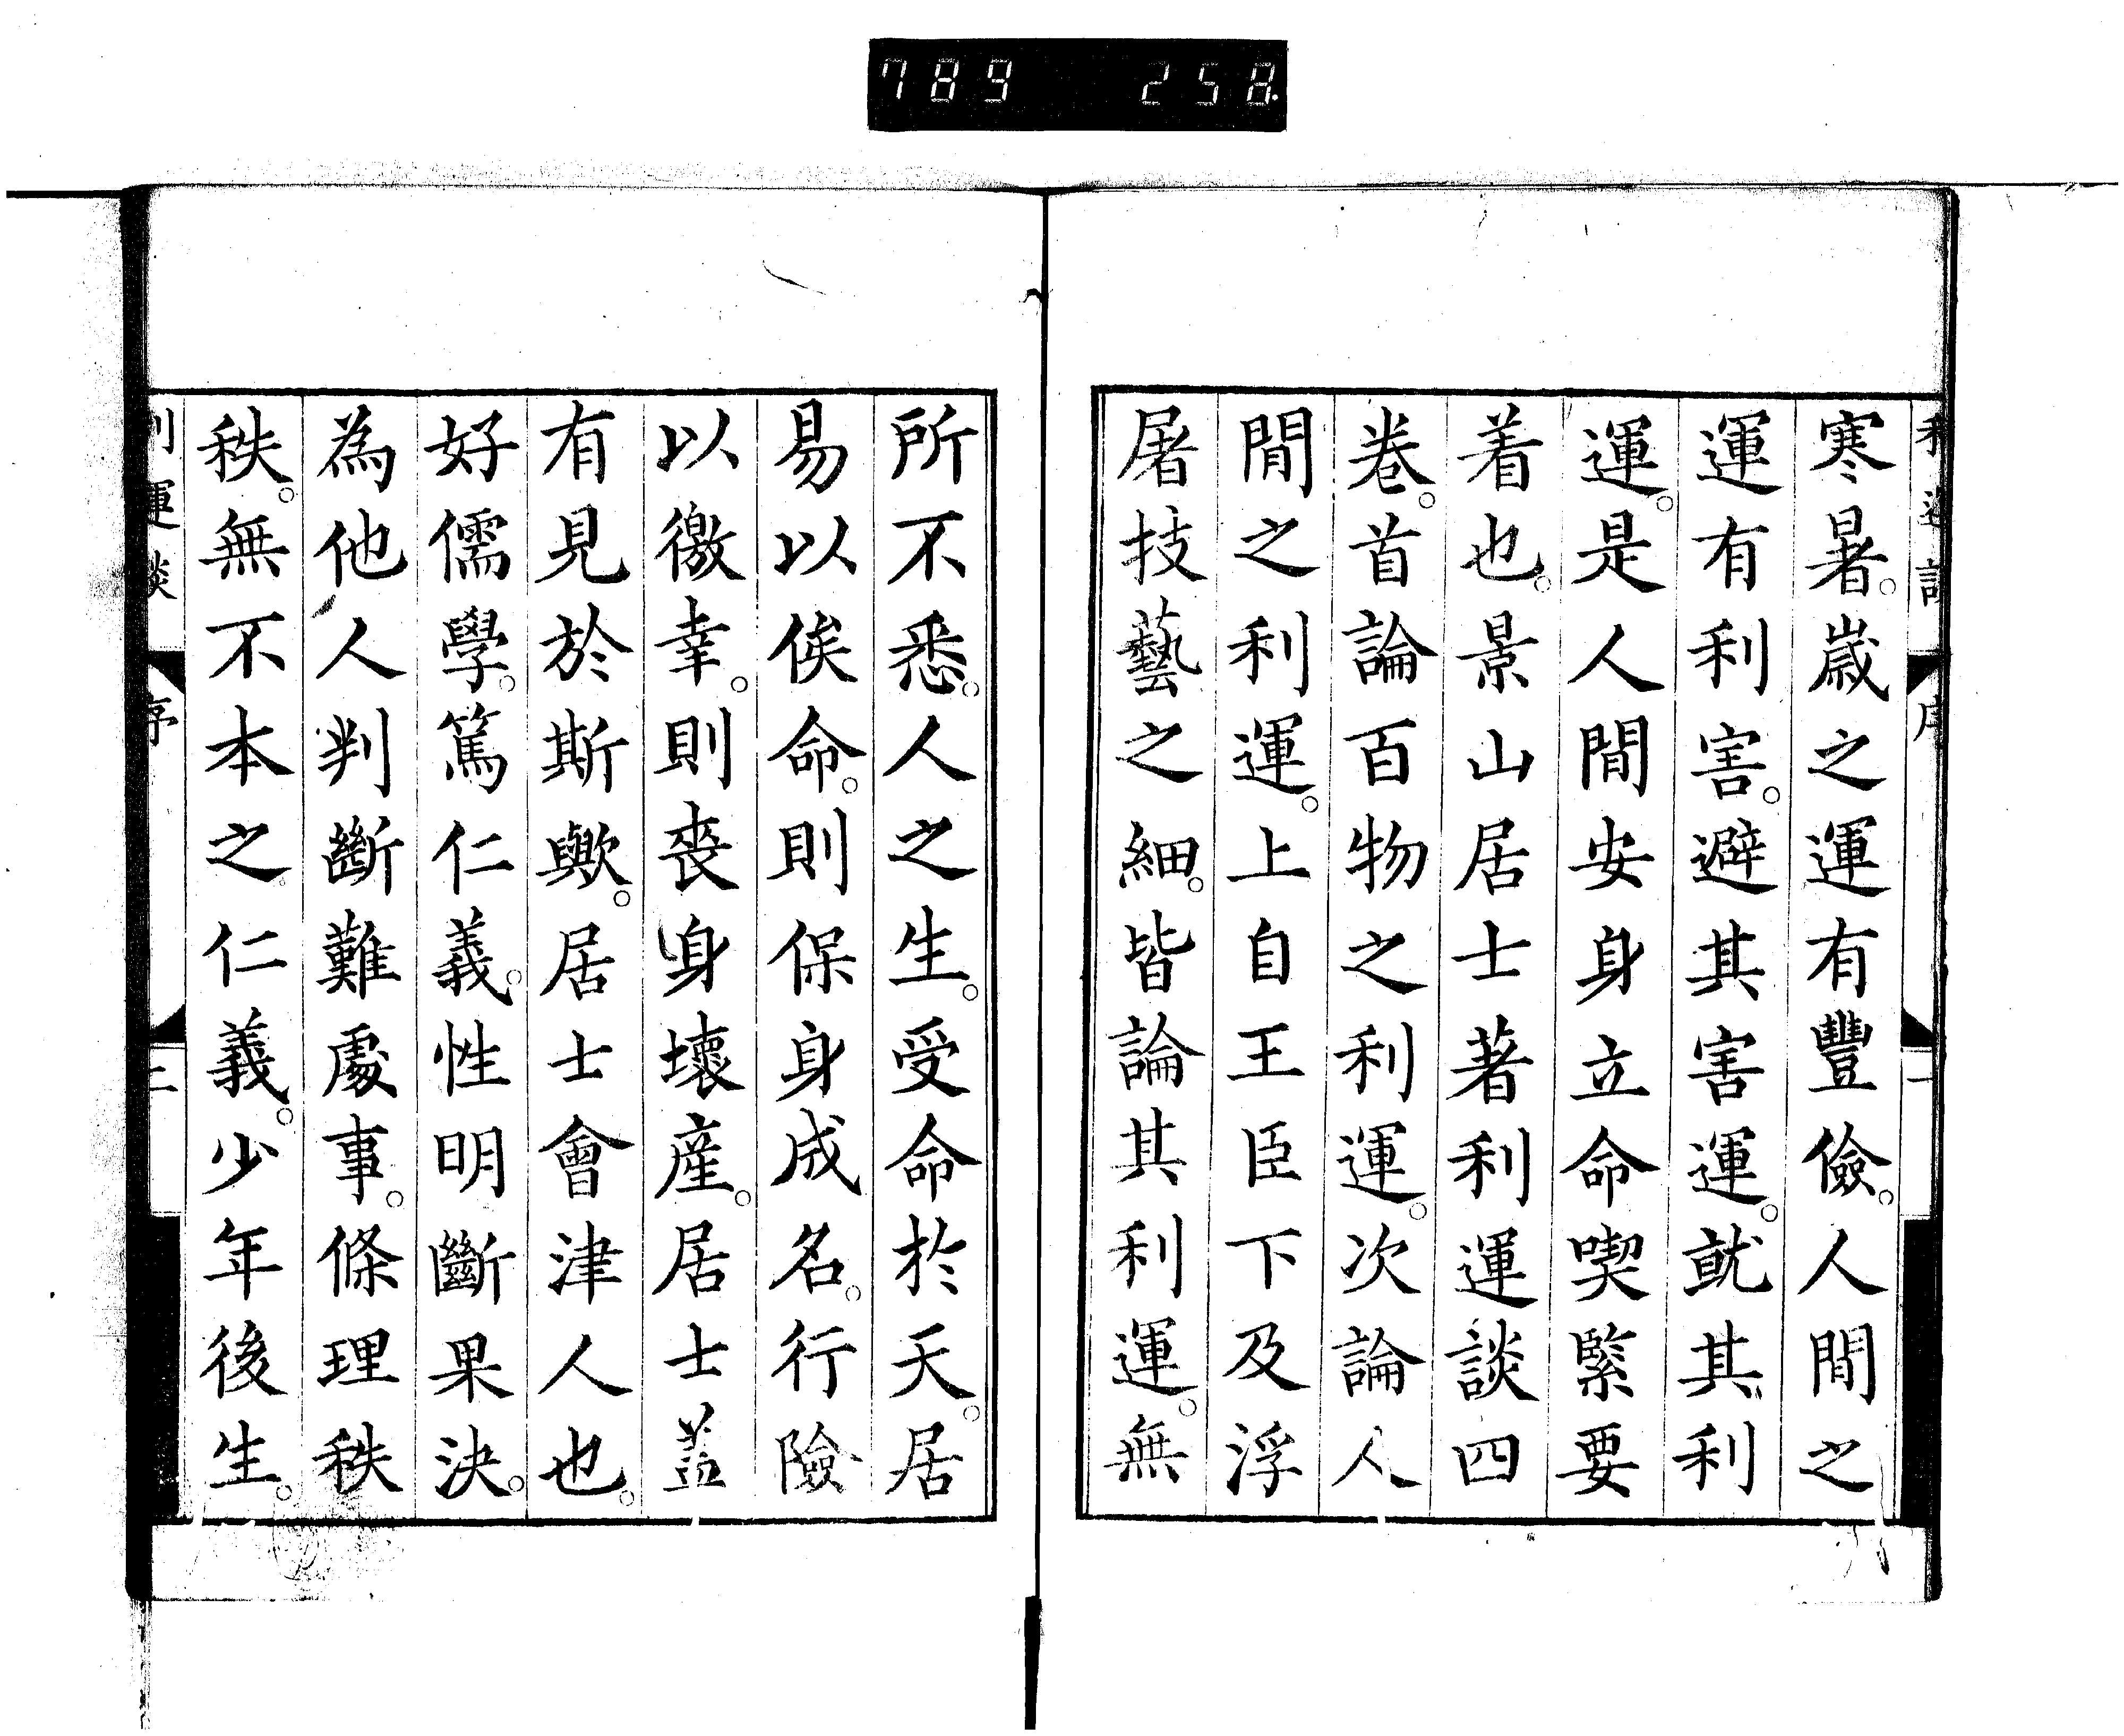 789 258.
寒暑。歳之運有豐儉。人間之
運有利害。避其害運。就其利
運。是人間安身立命喫緊要
着也。景山居士著利運談四
卷。首論百物之利運。次論人
間之利運。上自王臣下及浮
屠技藝之細。皆論其利運。無
所不悉。人之生。受命於天。居
易以俟命。則保身成名。行險
以徼幸。則喪身壞産。居士蓋
有見於斯歟。居士會津人也。
好儒學。篤仁義。性明斷果決。
為他人判斷難處事。條理秩
秩。無不本之仁義。少年後生。
利運談 序 二